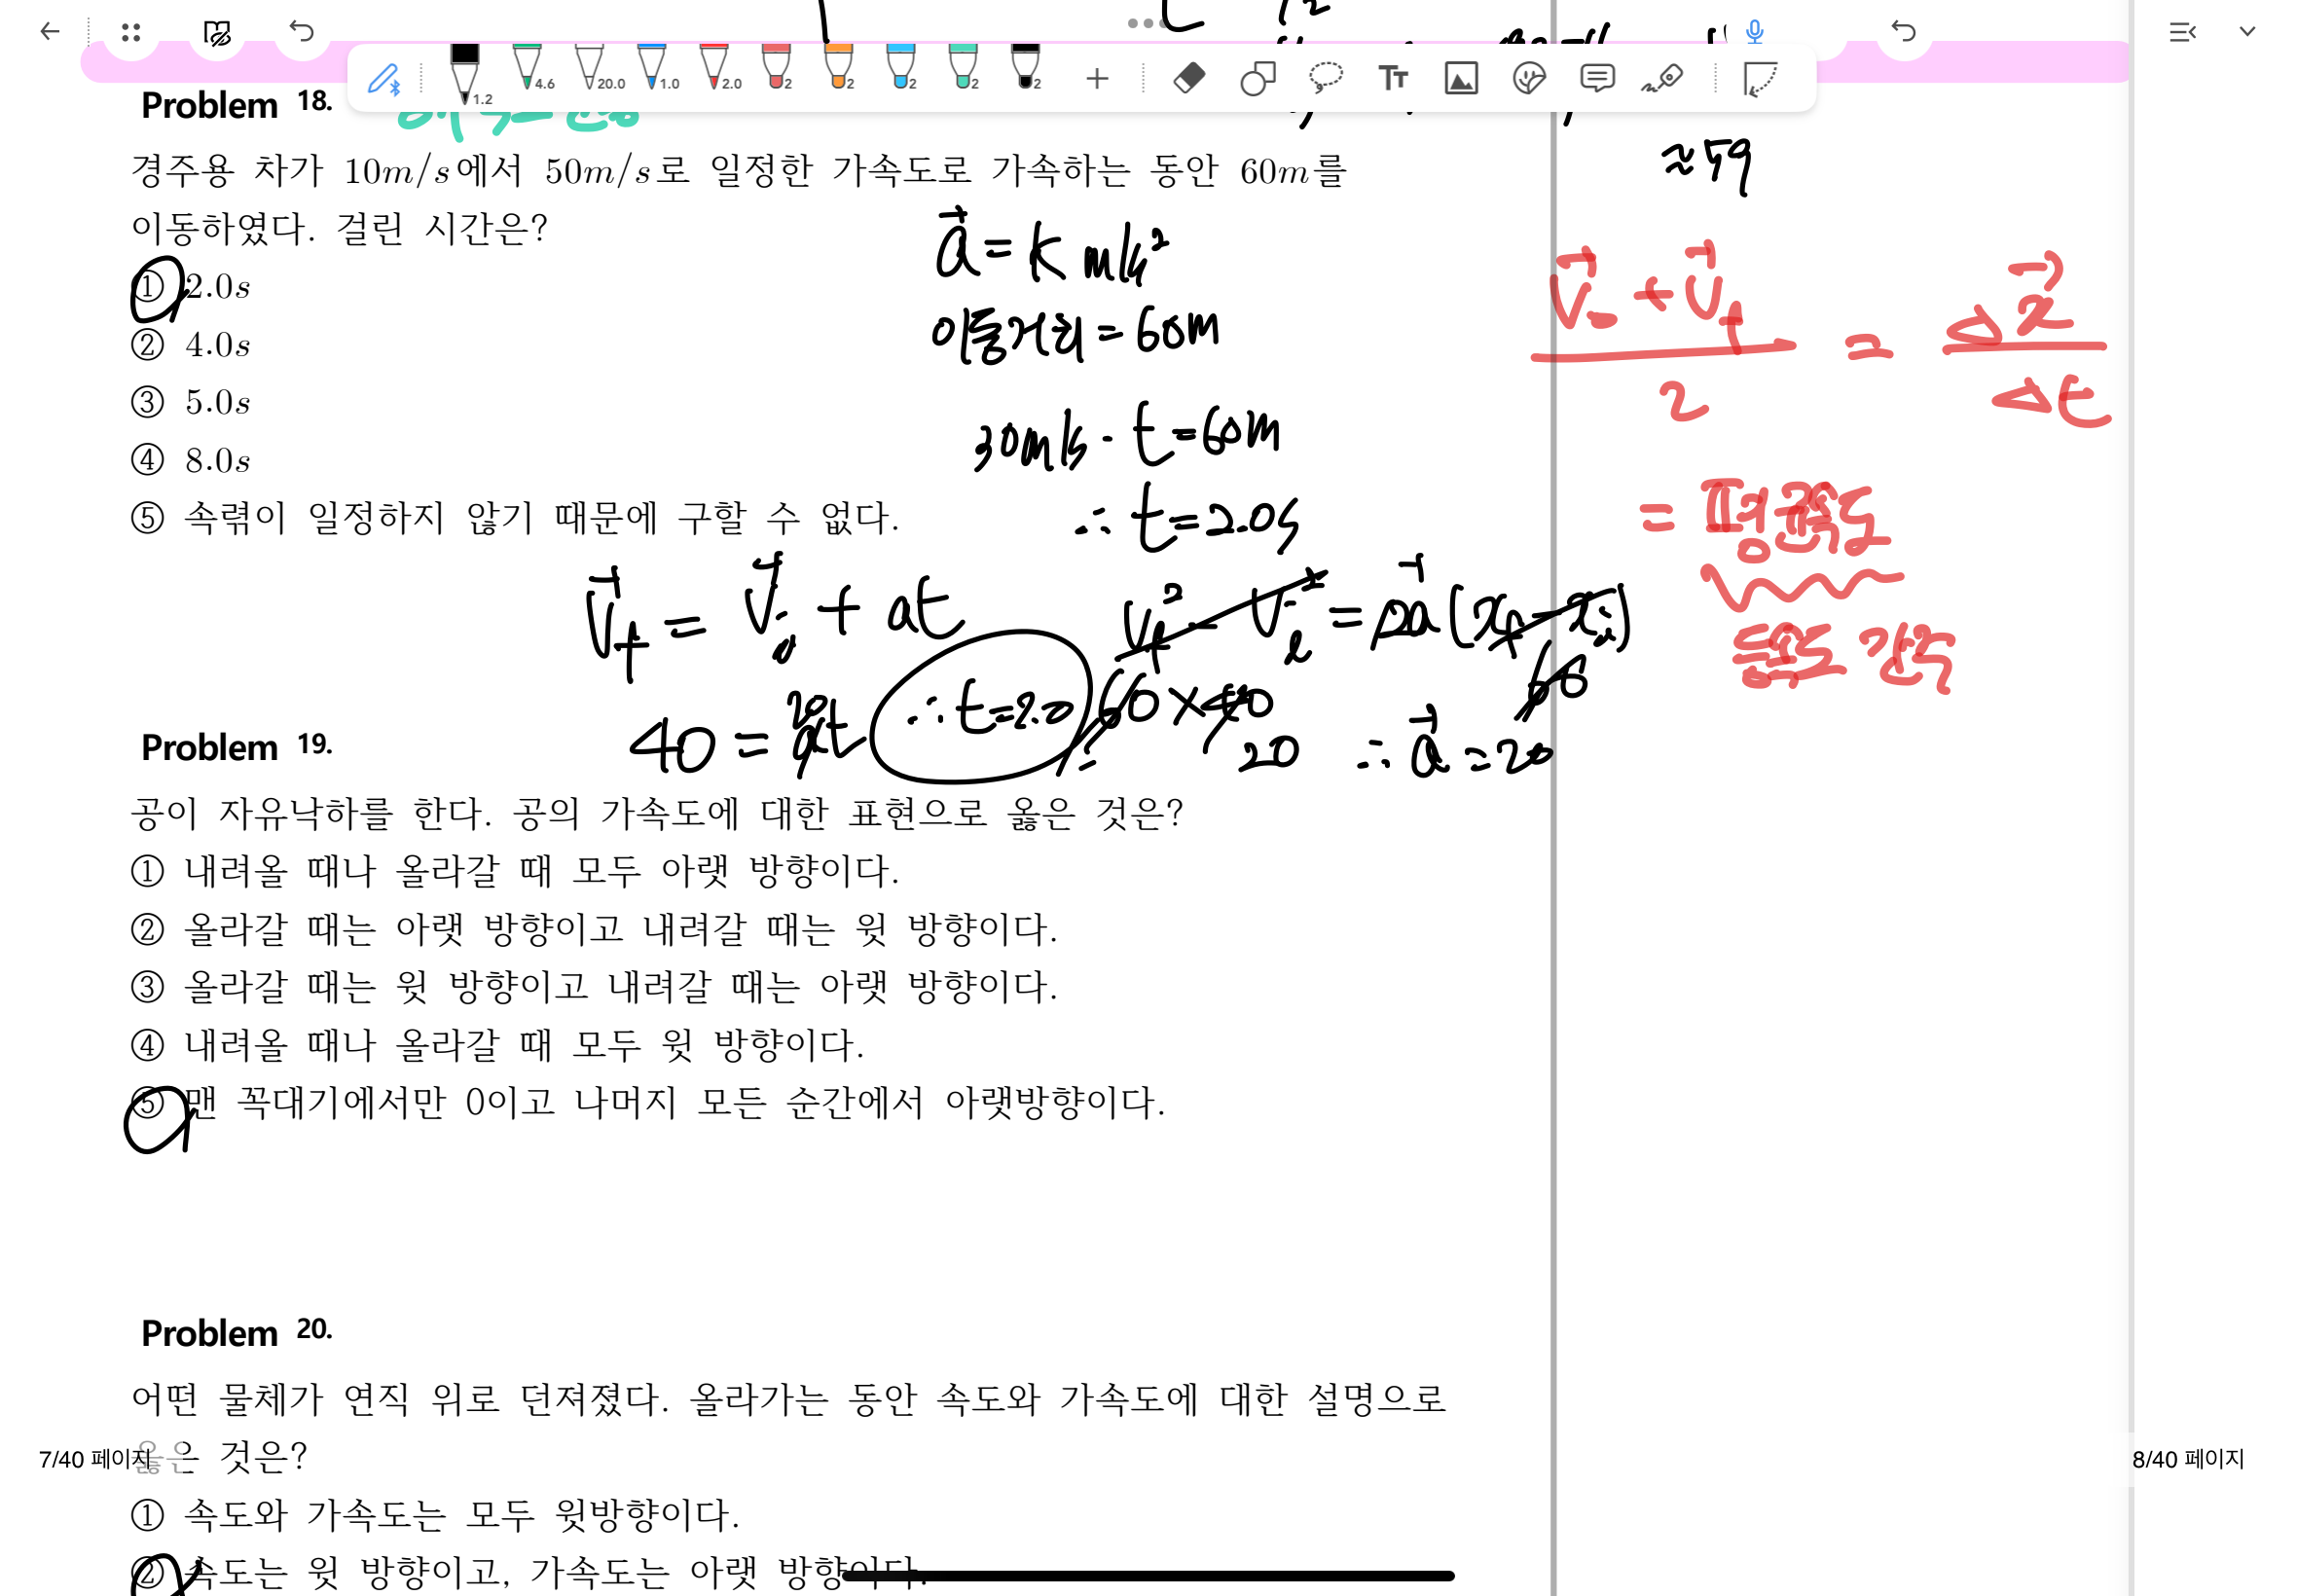 1.2 4.6 20.0 1.0 2.0 2 2 2 2 2
Problem 18.
≈59
경주용 차가 10m/s에서 50m/s로 일정한 가속도로 가속하는 동안 60m를
이동하였다. 걸린 시간은?
① 2.0s
② 4.0s
③ 5.0s
④ 8.0s
⑤ 속렦이 일정하지 않기 때문에 구할 수 없다.
a = k m/s²
이동거리 = 60m
30m/s · t = 60m
∴ t = 2.0s
V₀ + Vf / 2 = Δx / Δt
= 평균속도
등속도 간주
Vf = Vi + at
Vf² - Vi² = 2a (xf - xi)
60
40 = at
20
∴ t = 2.0
60 × 40
20
∴ a = 20
Problem 19.
공이 자유낙하를 한다. 공의 가속도에 대한 표현으로 옳은 것은?
① 내려올 때나 올라갈 때 모두 아랫 방향이다.
② 올라갈 때는 아랫 방향이고 내려갈 때는 윗 방향이다.
③ 올라갈 때는 윗 방향이고 내려갈 때는 아랫 방향이다.
④ 내려올 때나 올라갈 때 모두 윗 방향이다.
⑤ 맨 꼭대기에서만 0이고 나머지 모든 순간에서 아랫방향이다.
Problem 20.
어떤 물체가 연직 위로 던져졌다. 올라가는 동안 속도와 가속도에 대한 설명으로
옳은 것은?
7/40 페이지
8/40 페이지
① 속도와 가속도는 모두 윗방향이다.
② 속도는 윗 방향이고, 가속도는 아랫 방향이다.